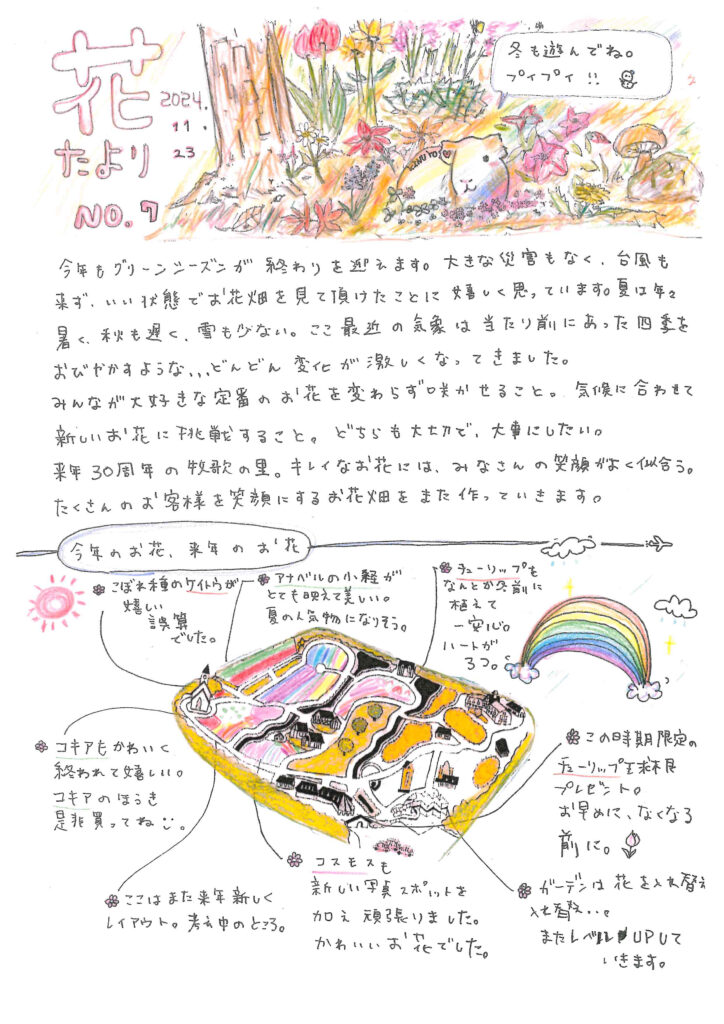 花
たより
NO.7
2024.
11.
23
冬も遊んでね。
プイプイ!!
今年もグリーンシーズンが終わりを迎えます。大きな災害もなく、台風も
来ず、いい状態でお花畑を見て頂けたことに嬉しく思っています。夏は年々
暑く、秋も遅く、雪も少ない。ここ最近の気象は当たり前にあった四季を
おびやかすような...どんどん変化が激しくなってきました。
みんなが大好きな定番のお花を変わらず咲かせること。気候に合わせて
新しいお花に挑戦すること。どちらも大切で、大事にしたい。
来年30周年の牧歌の里。キレイなお花には、みなさんの笑顔がよく似合う。
たくさんのお客様を笑顔にするお花畑をまた作っていきます。
今年のお花、来年のお花
こぼれ種のケイトウが
嬉しい
誤算
でした。
アナベルの小経が
とても映えて美しい。
夏の人気物になりそう。
チューリップも
なんとか冬前に
植えて
一安心。
ハートが
3つ。
コキアもかわいく
終われて嬉しい。
コキアのほうき
是非買ってね。
この時期限定の
チューリップ球根
プレゼント。
お早めに、なくなる
前に。
ここはまた来年新しく
レイアウト。考え中のところ。
コスモスも
新しい写真スポットを
加え頑張りました。
かわいいお花でした。
ガーデンは花を入れ替え
入れ替え...
またレベルUPして
いきます。